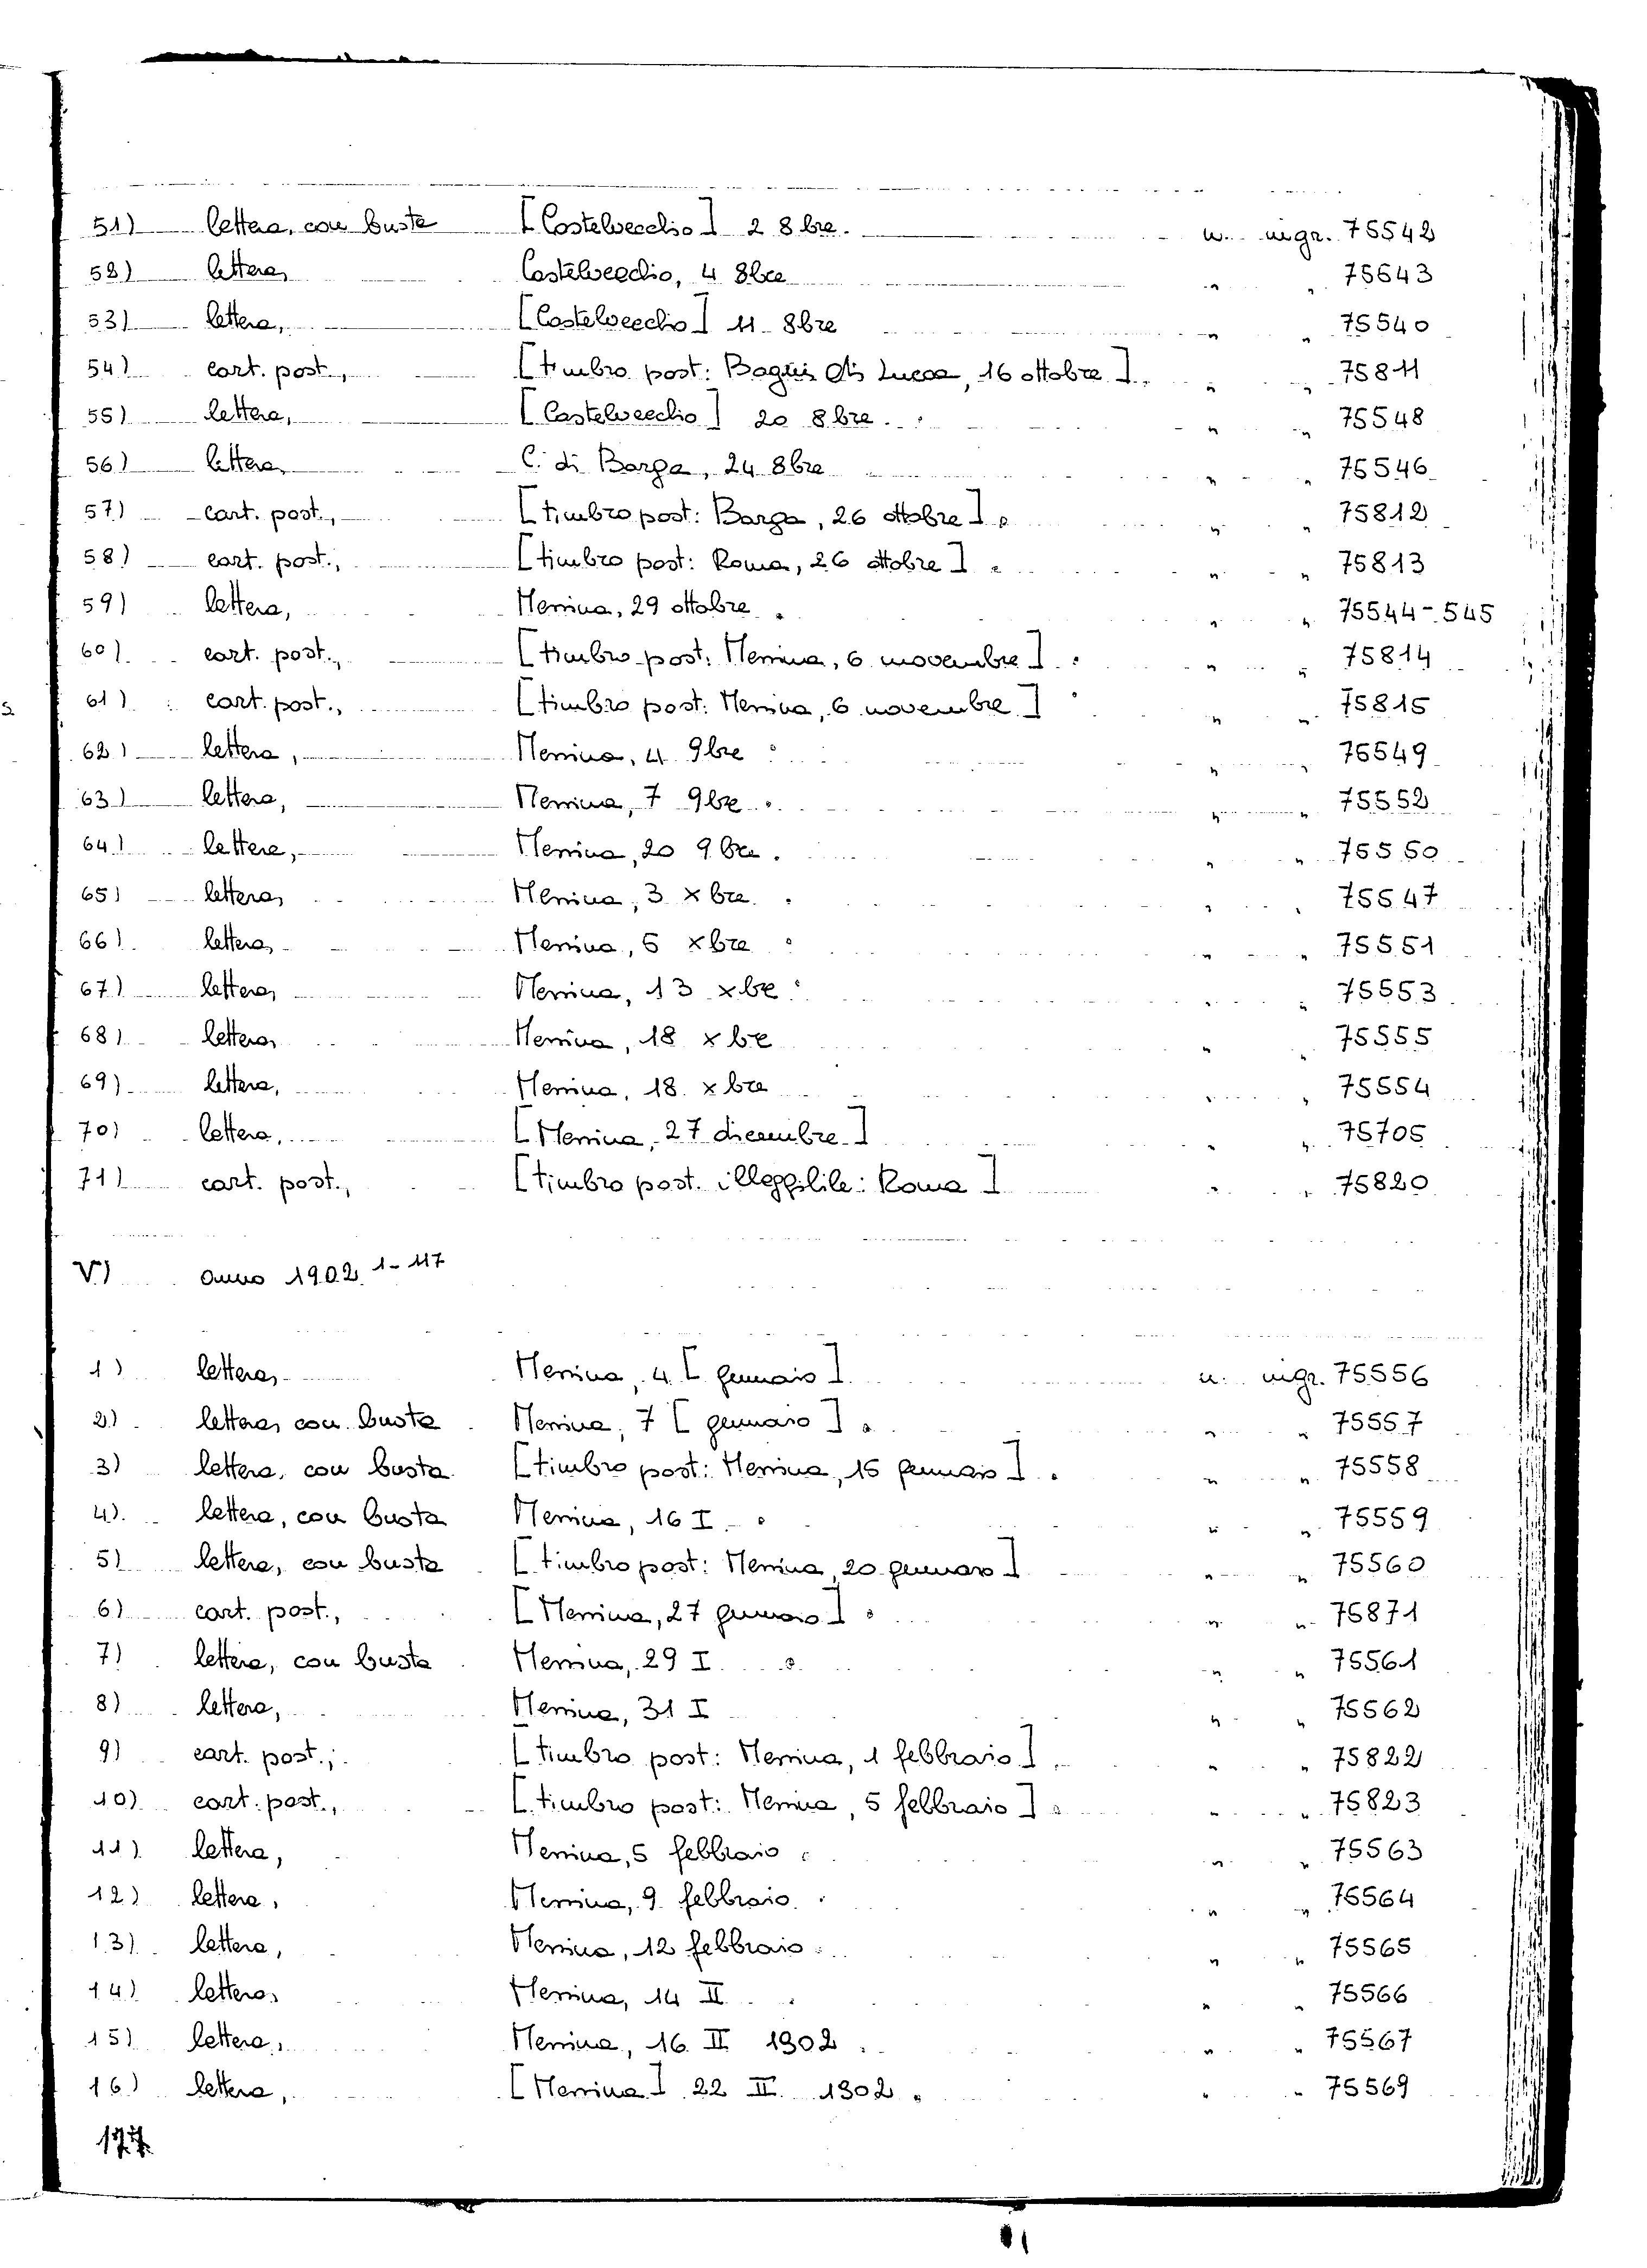 51) lettera, con busta [Castelvecchio] 2 8bre. n. ingr. 75542
52) lettera, Castelvecchio, 4 8bre " " 75543
53) lettera, [Castelvecchio] 11 8bre " " 75540
54) cart. post., [timbro post: Bagni di Lucca, 16 ottobre]. " " 75811
55) lettera, [Castelvecchio] 20 8bre. " " 75548
56) lettera, C. di Barga, 24 8bre " " 75546
57) cart. post., [timbro post: Barga, 26 ottobre]. " " 75812
58) cart. post., [timbro post: Roma, 26 ottobre]. " " 75813
59) lettera, Messina, 29 ottobre. " " 75544-545
60) cart. post., [timbro post: Messina, 6 novembre]. " " 75814
61) cart. post., [timbro post: Messina, 6 novembre] " " 75815
62) lettera, Messina, 4 9bre " " 75549
63) lettera, Messina, 7 9bre. " " 75552
64) lettera, Messina, 20 9bre. " " 75550
65) lettera, Messina, 3 xbre. " " 75547
66) lettera, Messina, 5 xbre " " 75551
67) lettera, Messina, 13 xbre " " 75553
68) lettera, Messina, 18 xbre " " 75555
69) lettera, Messina, 18 xbre " " 75554
70) lettera, [Messina, 27 dicembre] " " 75705
71) cart. post., [timbro post. illeggibile: Roma] " " 75820
V) anno 1902 1-117
1) lettera, Messina, 4 [gennaio] n. ingr. 75556
2) lettera, con busta Messina, 7 [gennaio]. " " 75557
3) lettera, con busta [timbro post: Messina, 15 gennaio]. " " 75558
4) lettera, con busta Messina, 16 I. " " 75559
5) lettera, con busta [timbro post: Messina, 20 gennaio] " " 75560
6) cart. post., [Messina, 27 gennaio]. " " 75871
7) lettera, con busta Messina, 29 I. " " 75561
8) lettera, Messina, 31 I " " 75562
9) cart. post., [timbro post: Messina, 1 febbraio]. " " 75822
10) cart. post., [timbro post: Messina, 5 febbraio]. " " 75823
11) lettera, Messina, 5 febbraio. " " 75563
12) lettera, Messina, 9 febbraio. " " 75564
13) lettera, Messina, 12 febbraio. " " 75565
14) lettera, Messina, 14 II. " " 75566
15) lettera, Messina, 16 II 1902. " " 75567
16) lettera, [Messina] 22 II 1902. " " 75569